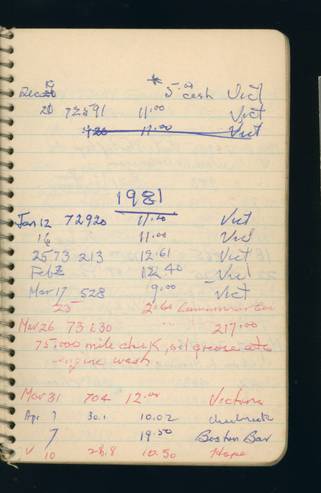 *
Dec 5.00 cash Vict
20 72591 11.00 Vict
11.00 Vict
1981
Jan 12 72920 11.20 Vict
16 11.00 Vict
25 73 213 12.61 Vict
Feb 12.40 Vict
Mar 17 528 9.00 Vict
25 2.60
Mar 26 73 630 217.00
75,000 mile check, oil grease etc
engine wash
Mar 31 704 12.00 Victoria
Apr 7 30.1 10.02
7 19.50 Boston Bar
10 28.8 10.50 Hope